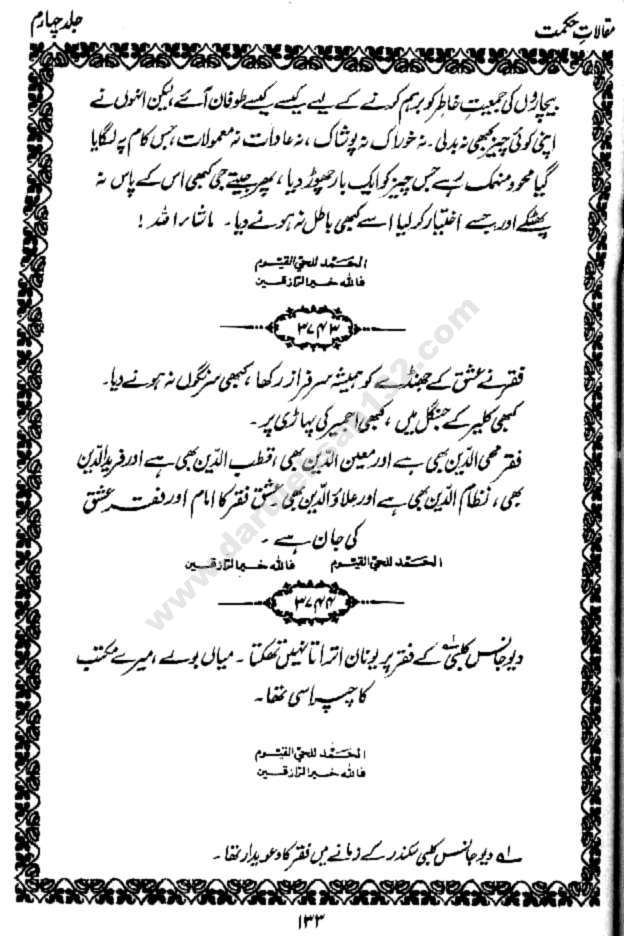 مقالاتِ حکمت
جلد چہارم
بیچاروں کی جمعیتِ خاطر کو برہم کرنے کے لیے کیسے کیسے طوفان آئے، لیکن انہوں نے
اپنی کوئی چیز کبھی نہ بدلی۔ نہ خوراک نہ پوشاک، نہ عادات نہ معمولات، جس کام پہ لگایا
گیا محو و منہمک رہے جس چیز کو ایک بار چھوڑ دیا، پھر جیتے جی کبھی اس کے پاس نہ
پھٹکے اور جسے اختیار کر لیا اسے کبھی باطل نہ ہونے دیا۔ ماشاء اللہ!
الحمد للحی القیوم
فاللہ خیر الرازقین
۳۷۴۳
فقر نے عشق کے جھنڈے کو ہمیشہ سرفراز رکھا، کبھی سرنگوں نہ ہونے دیا۔
کبھی کلیر کے جنگل میں، کبھی اجمیر کی پہاڑی پر۔
فقر محی الدین بھی ہے اور معین الدین بھی، قطب الدین بھی ہے اور فرید الدین
بھی، نظام الدین بھی ہے اور علاؤ الدین بھی۔ عشق فقر کا امام اور فقر عشق
کی جان ہے۔
الحمد للحی القیوم فاللہ خیر الرازقین
۳۷۴۴
دیو جانس کلبی لہ کے فقر پر یونان اتراتا نہیں تھکتا۔ میاں بولے، میرے مکتب
کا چپراسی تھا۔
الحمد للحی القیوم
فاللہ خیر الرازقین
لہ دیو جانس کلبی سکندر کے زمانے میں فقر کا دعویدار تھا۔
۱۳۳